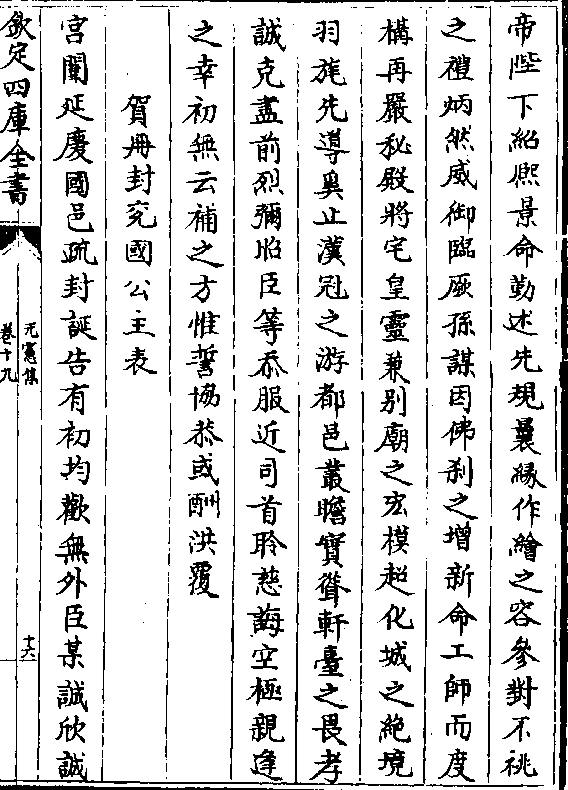 帝陛下紹熈景命勤述先規曩縁作繪之容參對不祧
之禮炳然威御臨厥孫謀因佛刹之增新命工師而度
構再嚴秘殿將宅皇靈兼别廟之宏模超化城之絶境
羽旄先導奠止漢冠之游都邑叢瞻實聳軒臺之畏孝
誠克盡前烈彌昭臣等忝服近司首聆慈誨空極親逢
之幸初無云補之方惟誓協恭或酬洪覆
賀冊封兖國公主表
宮闈延慶國邑疏封誕告有初均歡無外臣某誠欣誠
欽定四庫全書
元憲集
卷十九
十六